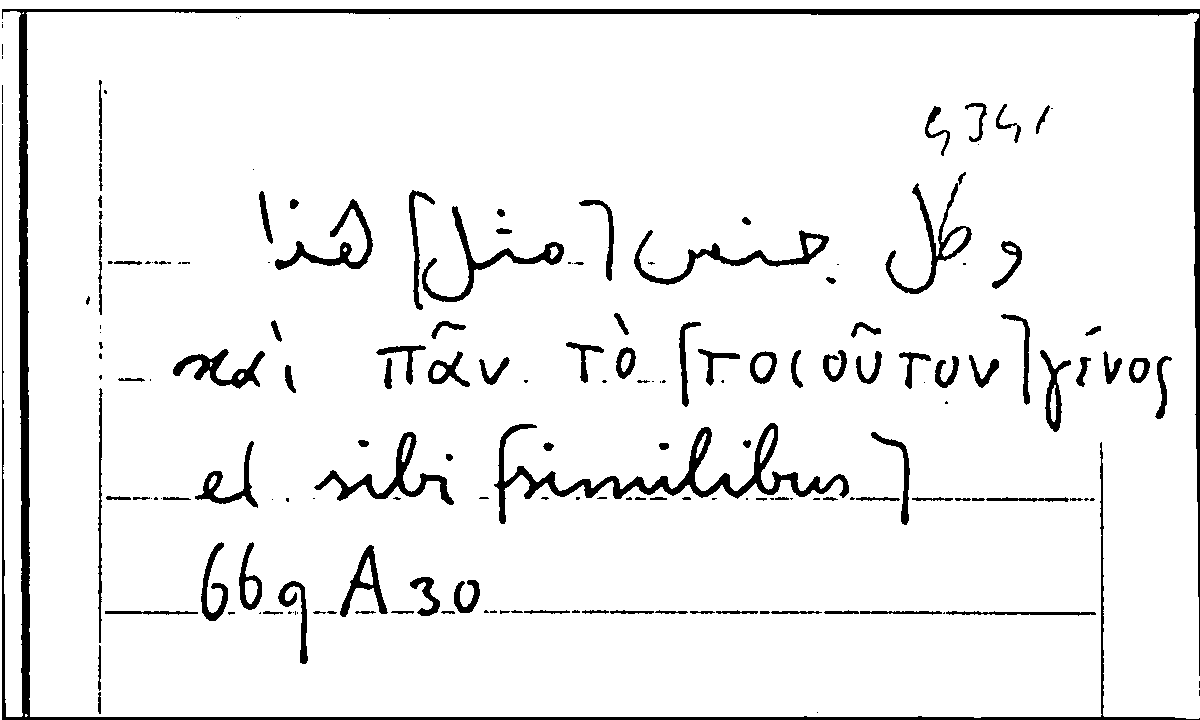 4341
وكل جنس [مثل] هذا
καὶ πᾶν τὸ [τοιοῦτον] γένος
et sibi [similibus]
669 A 30